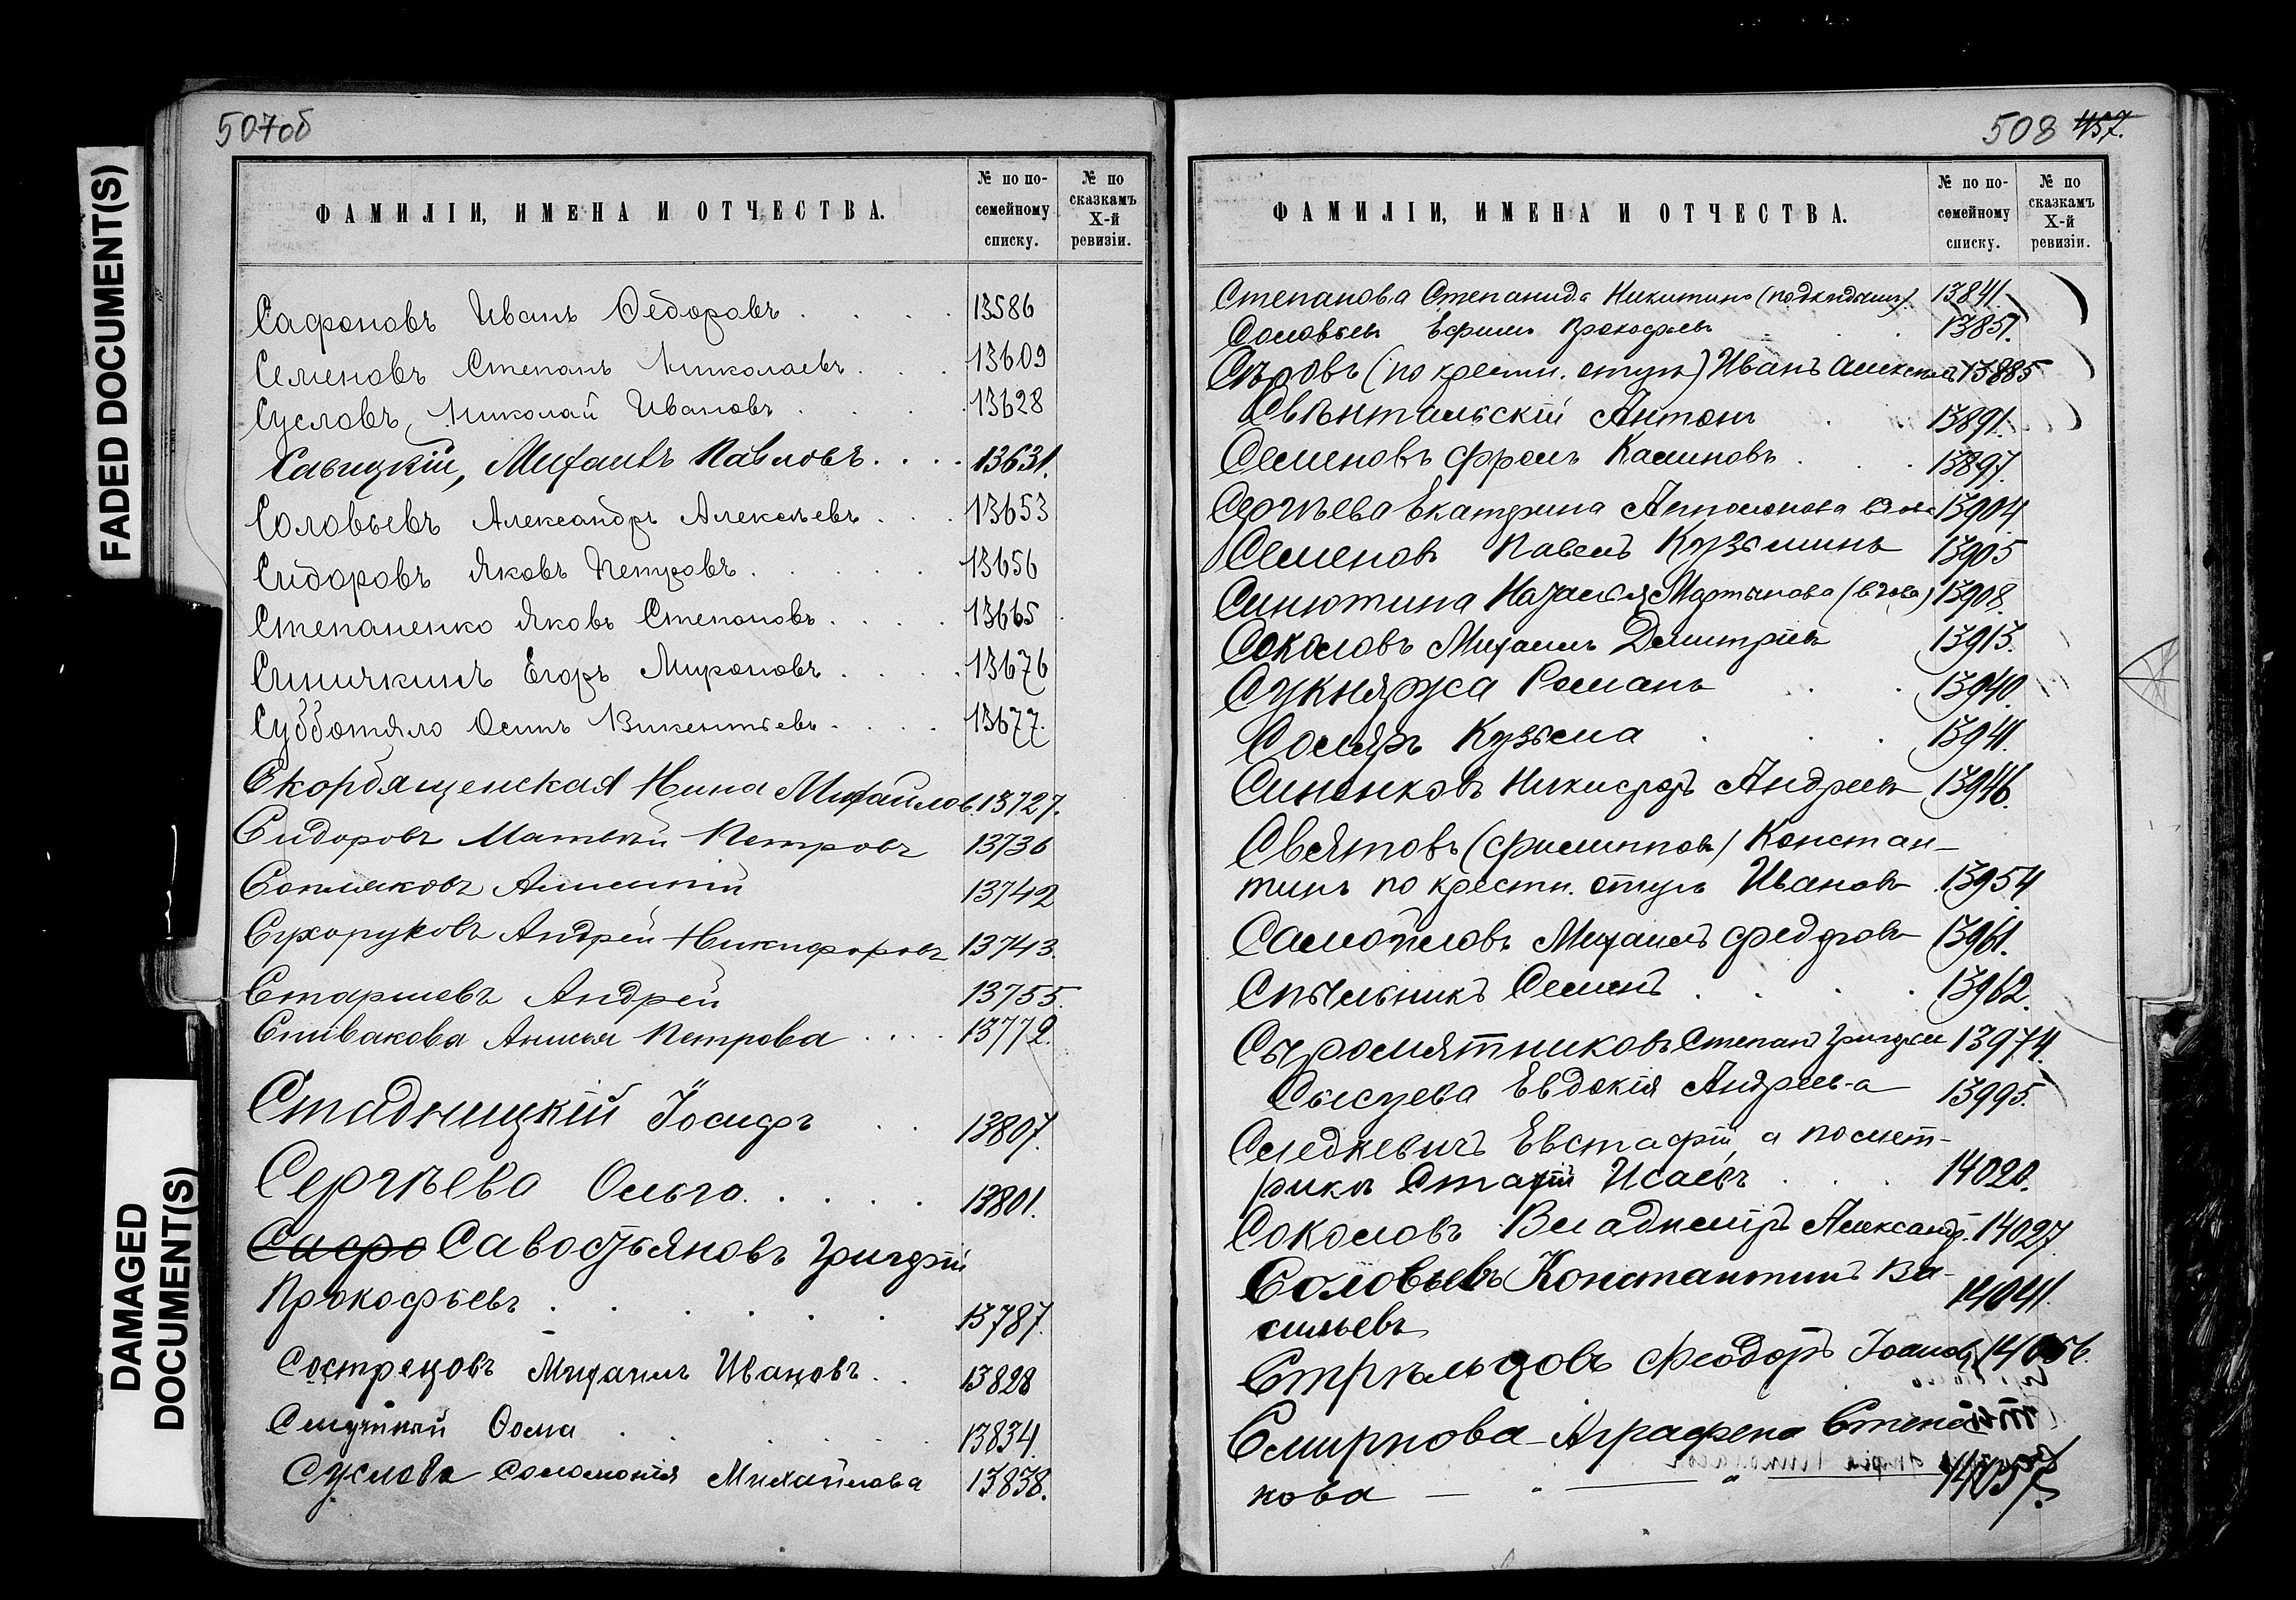 FADED DOCUMENT(S)
DAMAGED DOCUMENT(S)
507об
ФАМИЛІИ, ИМЕНА И ОТЧЕСТВА.
№ по по-семейному списку.
№ по сказкамъ X-й ревизіи.
Сафоновъ Иванъ Ѳедоровъ . . . . 13586
Семеновъ Степанъ Николаевъ . . . 13609
Сусловъ, Николай Ивановъ . . . . 13628
Савицкій, Михаилъ Павловъ . . . . 13631.
Соловьевъ Александръ Алексѣевъ . . . 13653
Сидоровъ Яковъ Петровъ . . . . . 13656
Степаненко Яковъ Степановъ . . . . 13665
Синичкинъ Егоръ Мироновъ . . . . 13676
Субботяло Осипъ Викентьевъ . . . . 13677.
Скорбященская Нина Михайлов. 13727.
Сидоровъ Матвѣй Петровъ 13736
Сопляковъ 13742
Сухоруковъ Андрей Никифоровъ 13743.
Старшевъ Андрей 13755.
Спивакова Анисья Петрова . . . . 13772.
Стадницкій Іосифъ . . 13807.
Сергѣева Ольга . . . . . 13801.
Сафро Савостьяновъ Григорій
Прокофьевъ . . . . . . 13787.
Состренцовъ Михаилъ Ивановъ . . 13828
Ѳома . . . . . . 13834.
Суслова Соломонія Михайлова 13838.
508 457.
ФАМИЛІИ, ИМЕНА И ОТЧЕСТВА.
№ по по-семейному списку.
№ по сказкамъ X-й ревизіи.
Степанова Степанида Никитина (подкидышъ) 13841.
Соловьевъ Ефимъ Прокофьевъ . . 13851.
Сѣровъ (по крестн. отцу) Иванъ Алексѣевъ 13885
Свѣнтильскій Антонъ . 13891.
Семеновъ Фролъ Калиновъ . . . 13897.
Сергѣева Екатерина Антонова вдова 13904
Семеновъ Павелъ Кузьминъ 13905
Синютина Наталія Мартынова (вдова) 13908.
Соколовъ Михаилъ Дмитріевъ 13913.
Сукняржа Романъ . . 13940.
Соляръ Кузьма . . . 13941.
Синенковъ Никифоръ Андреевъ 13946.
Святовъ (Филипповъ) Констан-
тинъ по крестн. отцу Ивановъ 13954.
Самойловъ Михаилъ Федоровъ 13961.
Спѣльникъ Семенъ . . . . 13962.
Сыромятниковъ Степанъ Григорьев 13974.
Сысуева Евдокія Андреева 13995.
Следкевичъ Евстафій а по мет-
рикѣ Стафій Исаевъ . . . 14020.
Соколовъ Владиміръ Александр. 14027.
Соловьевъ Константинъ Ва-
сильевъ 14041.
Стрѣльцовъ Феодоръ Іоанов. 14056.
Смирнова Аграфена Степа-
нова — " — " 14057.